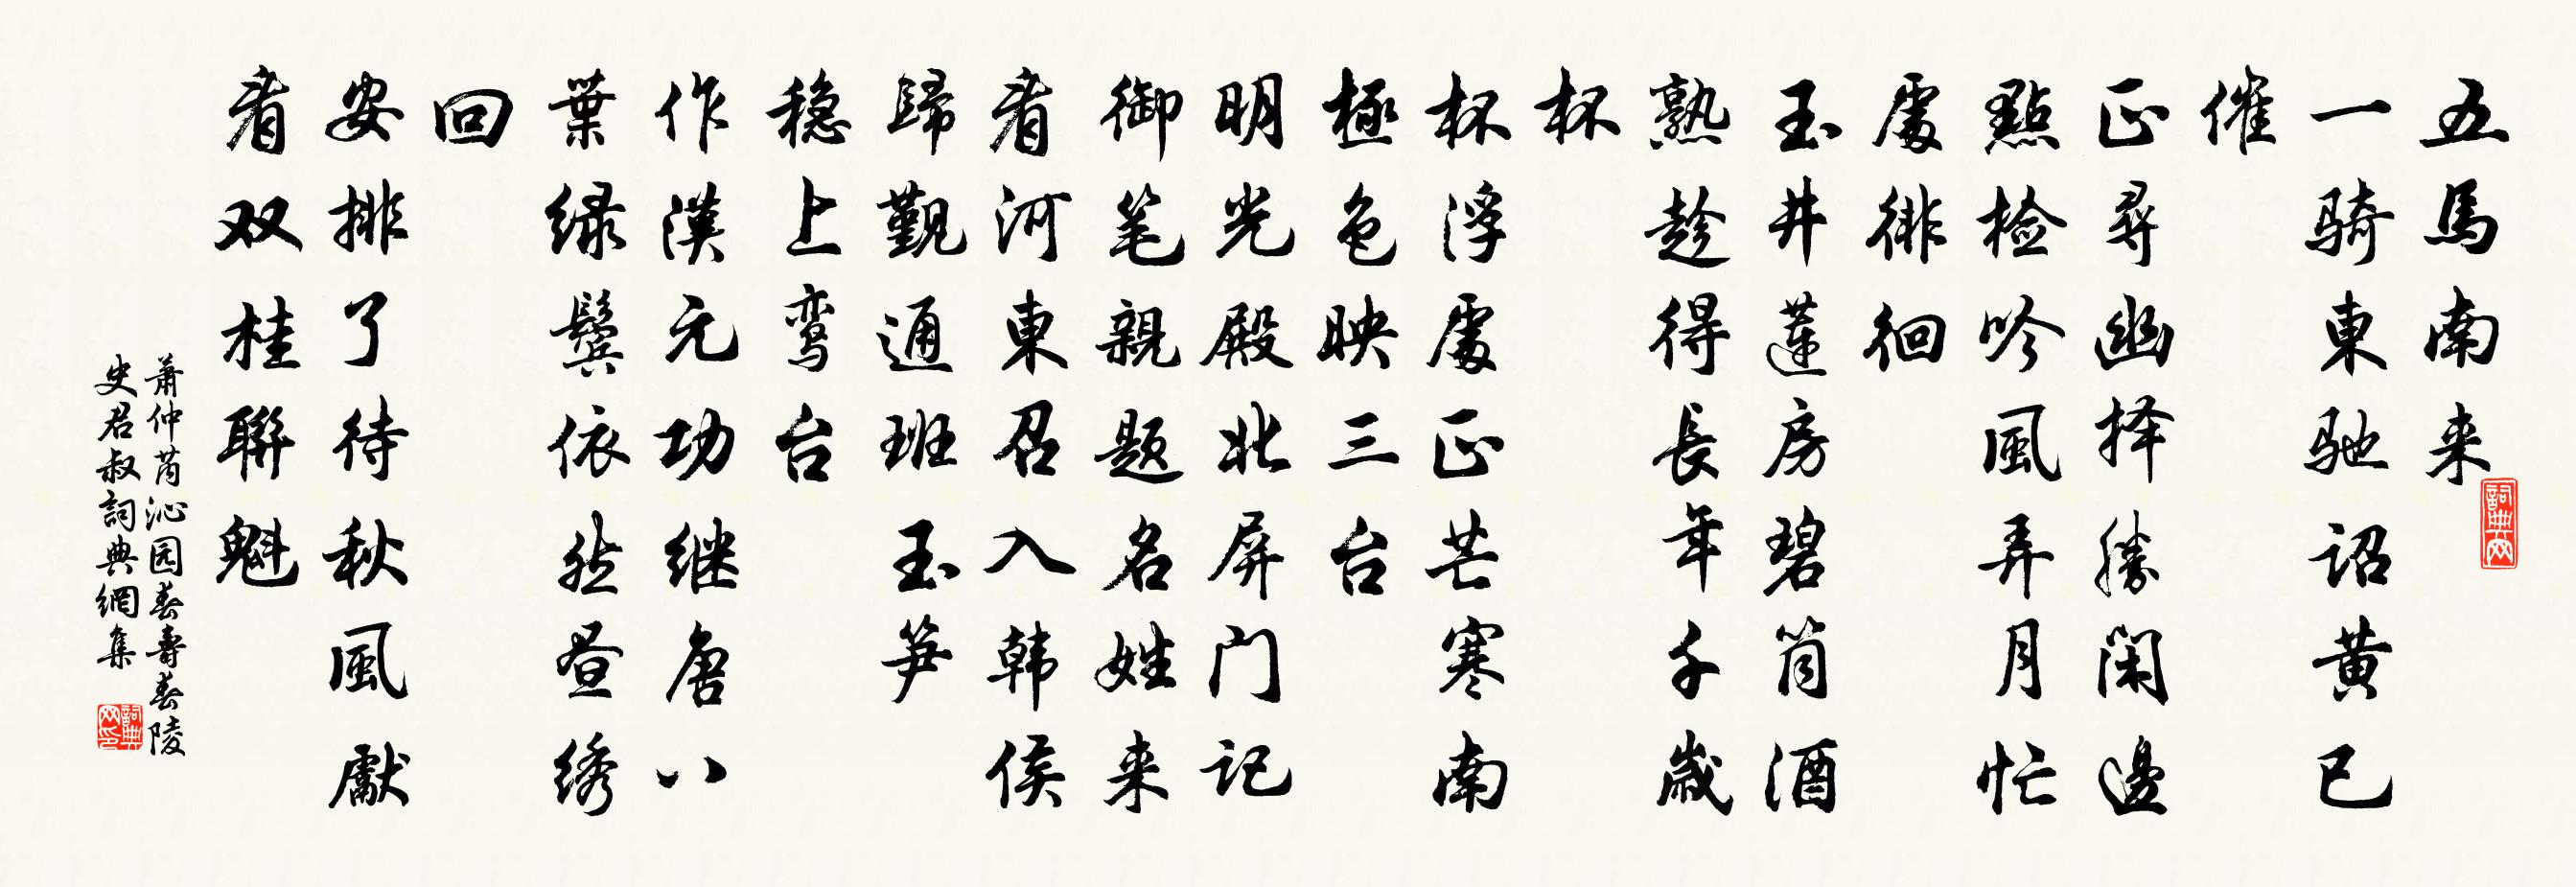 五馬南来
一骑東驰诏黄已
催
正尋幽择勝閑邊
點检吟風弄月忙
處徘徊
玉井蓮房碧筒酒
熟趁得長年千歲
杯
杯浮處正芒寒南
極色映三台
明光殿北屏门记
御笔親题名姓来
看河東召入韩侯
歸觐通班玉笋
稳上鸾台
作漢元功继唐八
葉绿鬓依然昼绣
回
安排了待秋風獻
看双桂聯魁
萧仲芮沁园春壽春陵
史君叔詞典網集
詞典网
詞典网印